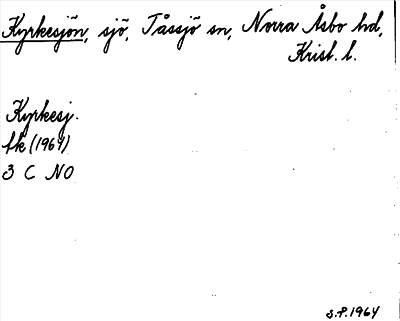 Kyrkesjön, sjö, Tåssjö sn, Norra Åsbo hd,
Krist. l.
Kyrkesj.
fk (1964)
3 C NO
S.P. 1964